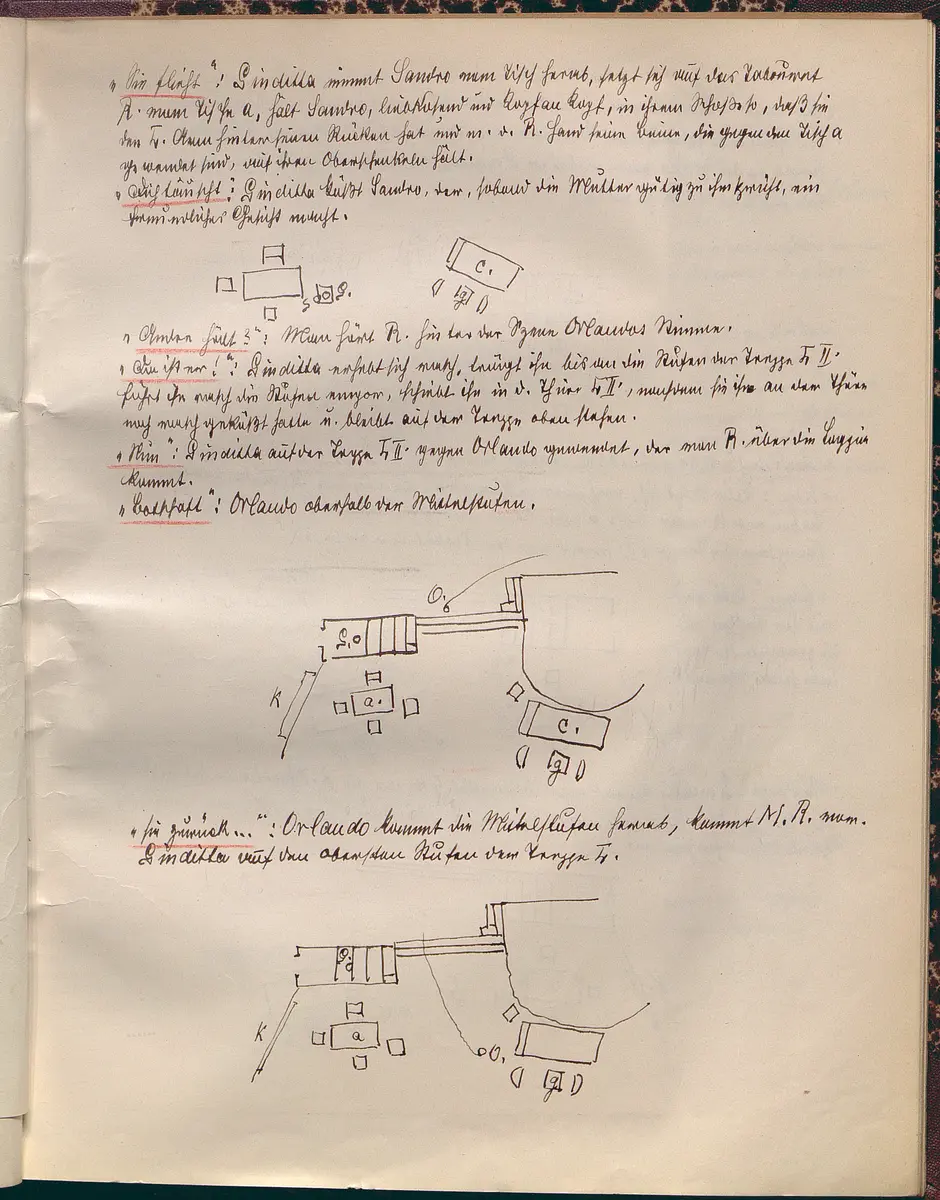 „Sie flieht“: Giuditta nimmt Sandro vom Tisch herab, setzt sich auf das Tabouret
R. vom Tische a, hält Sandro, liebkosend und Kopf an Kopf, in ihrem Schoße so, daß sie
den L. Arm hinter seinen Rücken hat und m. d. R. Hand seine Beine, die gegen den Tisch a
gewendet sind, auf ihren Oberschenkeln hält.
„ täuscht“: Giuditta küßt Sandro, der, sobald die Mutter gütig zu ihm spricht, ein
freundliches Gesicht macht.
S G.
c.
g
„ hört ?“: Man hört R. hinter der Szene Orlandos Stimme.
„Da ist er!“: Giuditta erhebt sich rasch, trägt ihn bis an die Stufen der Treppe L II.
führt ihn rasch die Stufen empor, schiebt ihn in d. Thüre L II., nachdem sie ihn an der Thüre
noch rasch geküßt hatte u. bleibt auf der Treppe oben stehen.
„Nun“: Giuditta auf der Treppe L II. gegen Orlando gewendet, der von R. über die Loggia
kommt.
„Botschaft“: Orlando oberhalb der Mittelstufen.
O.
G.
K
a.
c.
g
„sie zurück...“: Orlando kommt die Mittelstufen herab, kommt M. R. vor.
Giuditta auf den obersten Stufen der Treppe L.
G.
K
a
O.
g